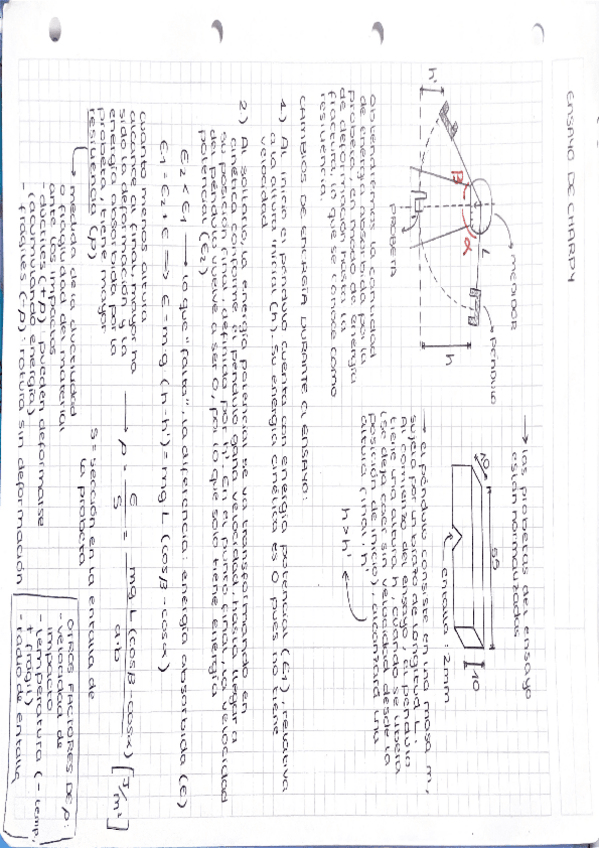 ENSAYO DE CHARPY
medidor
péndulo
L
β
α
h'
h
PROBETA
→ las probetas del ensayo
están normalizadas
55
10
10
entalla: 2mm
→ el péndulo consiste en una masa m,
sujeto por un brazo de longitud L.
Al comienzo del ensayo, el péndulo
tiene una altura h, cuando se libera
(se deja caer sin velocidad desde la
posición de inicio), alcanzará una
altura final: h'
h > h'
Obtendremos la cantidad
de energía absorbida por la
probeta, en modo de energía
de deformación hasta la
fractura, lo que se conoce como
resiliencia.
CAMBIOS DE ENERGÍA DURANTE EL ENSAYO:
1) Al inicio el péndulo cuenta con energía potencial (E1), relativa
a la altura inicial (h). Su energía cinética es 0 pues no tiene
velocidad
2) Al soltarlo, la energía potencial se va transformando en
cinética conforme el péndulo gana velocidad hasta llegar a
su posición final, definida por h'. En el punto final, la velocidad
del péndulo vuelve a ser 0, por lo que solo tiene energía
potencial (E2)
E2 < E1 → lo que "falta", la diferencia: energía absorbida (E)
E1 = E2 + E ⟹ E = mg (h-h') = mg L (cosβ - cosα)
cuanto menos altura
alcance al final, mayor ha
sido la deformación y la
energía absorbida por la
probeta, tiene mayor
resiliencia (ρ)
→ ρ = E/S = mg L (cosβ - cosα)/a·b [J/m²]
S = sección en la entalla de
la probeta
→ medida de la ductilidad
o fragilidad del material
ante los impactos
- dúctiles (+ρ) pueden deformarse
(acumulando energía)
- frágiles (-ρ): rotura sin deformación
OTROS FACTORES DE ρ:
- velocidad de
impacto
- temperatura (- temp,
+ frágil)
- radio de entalla